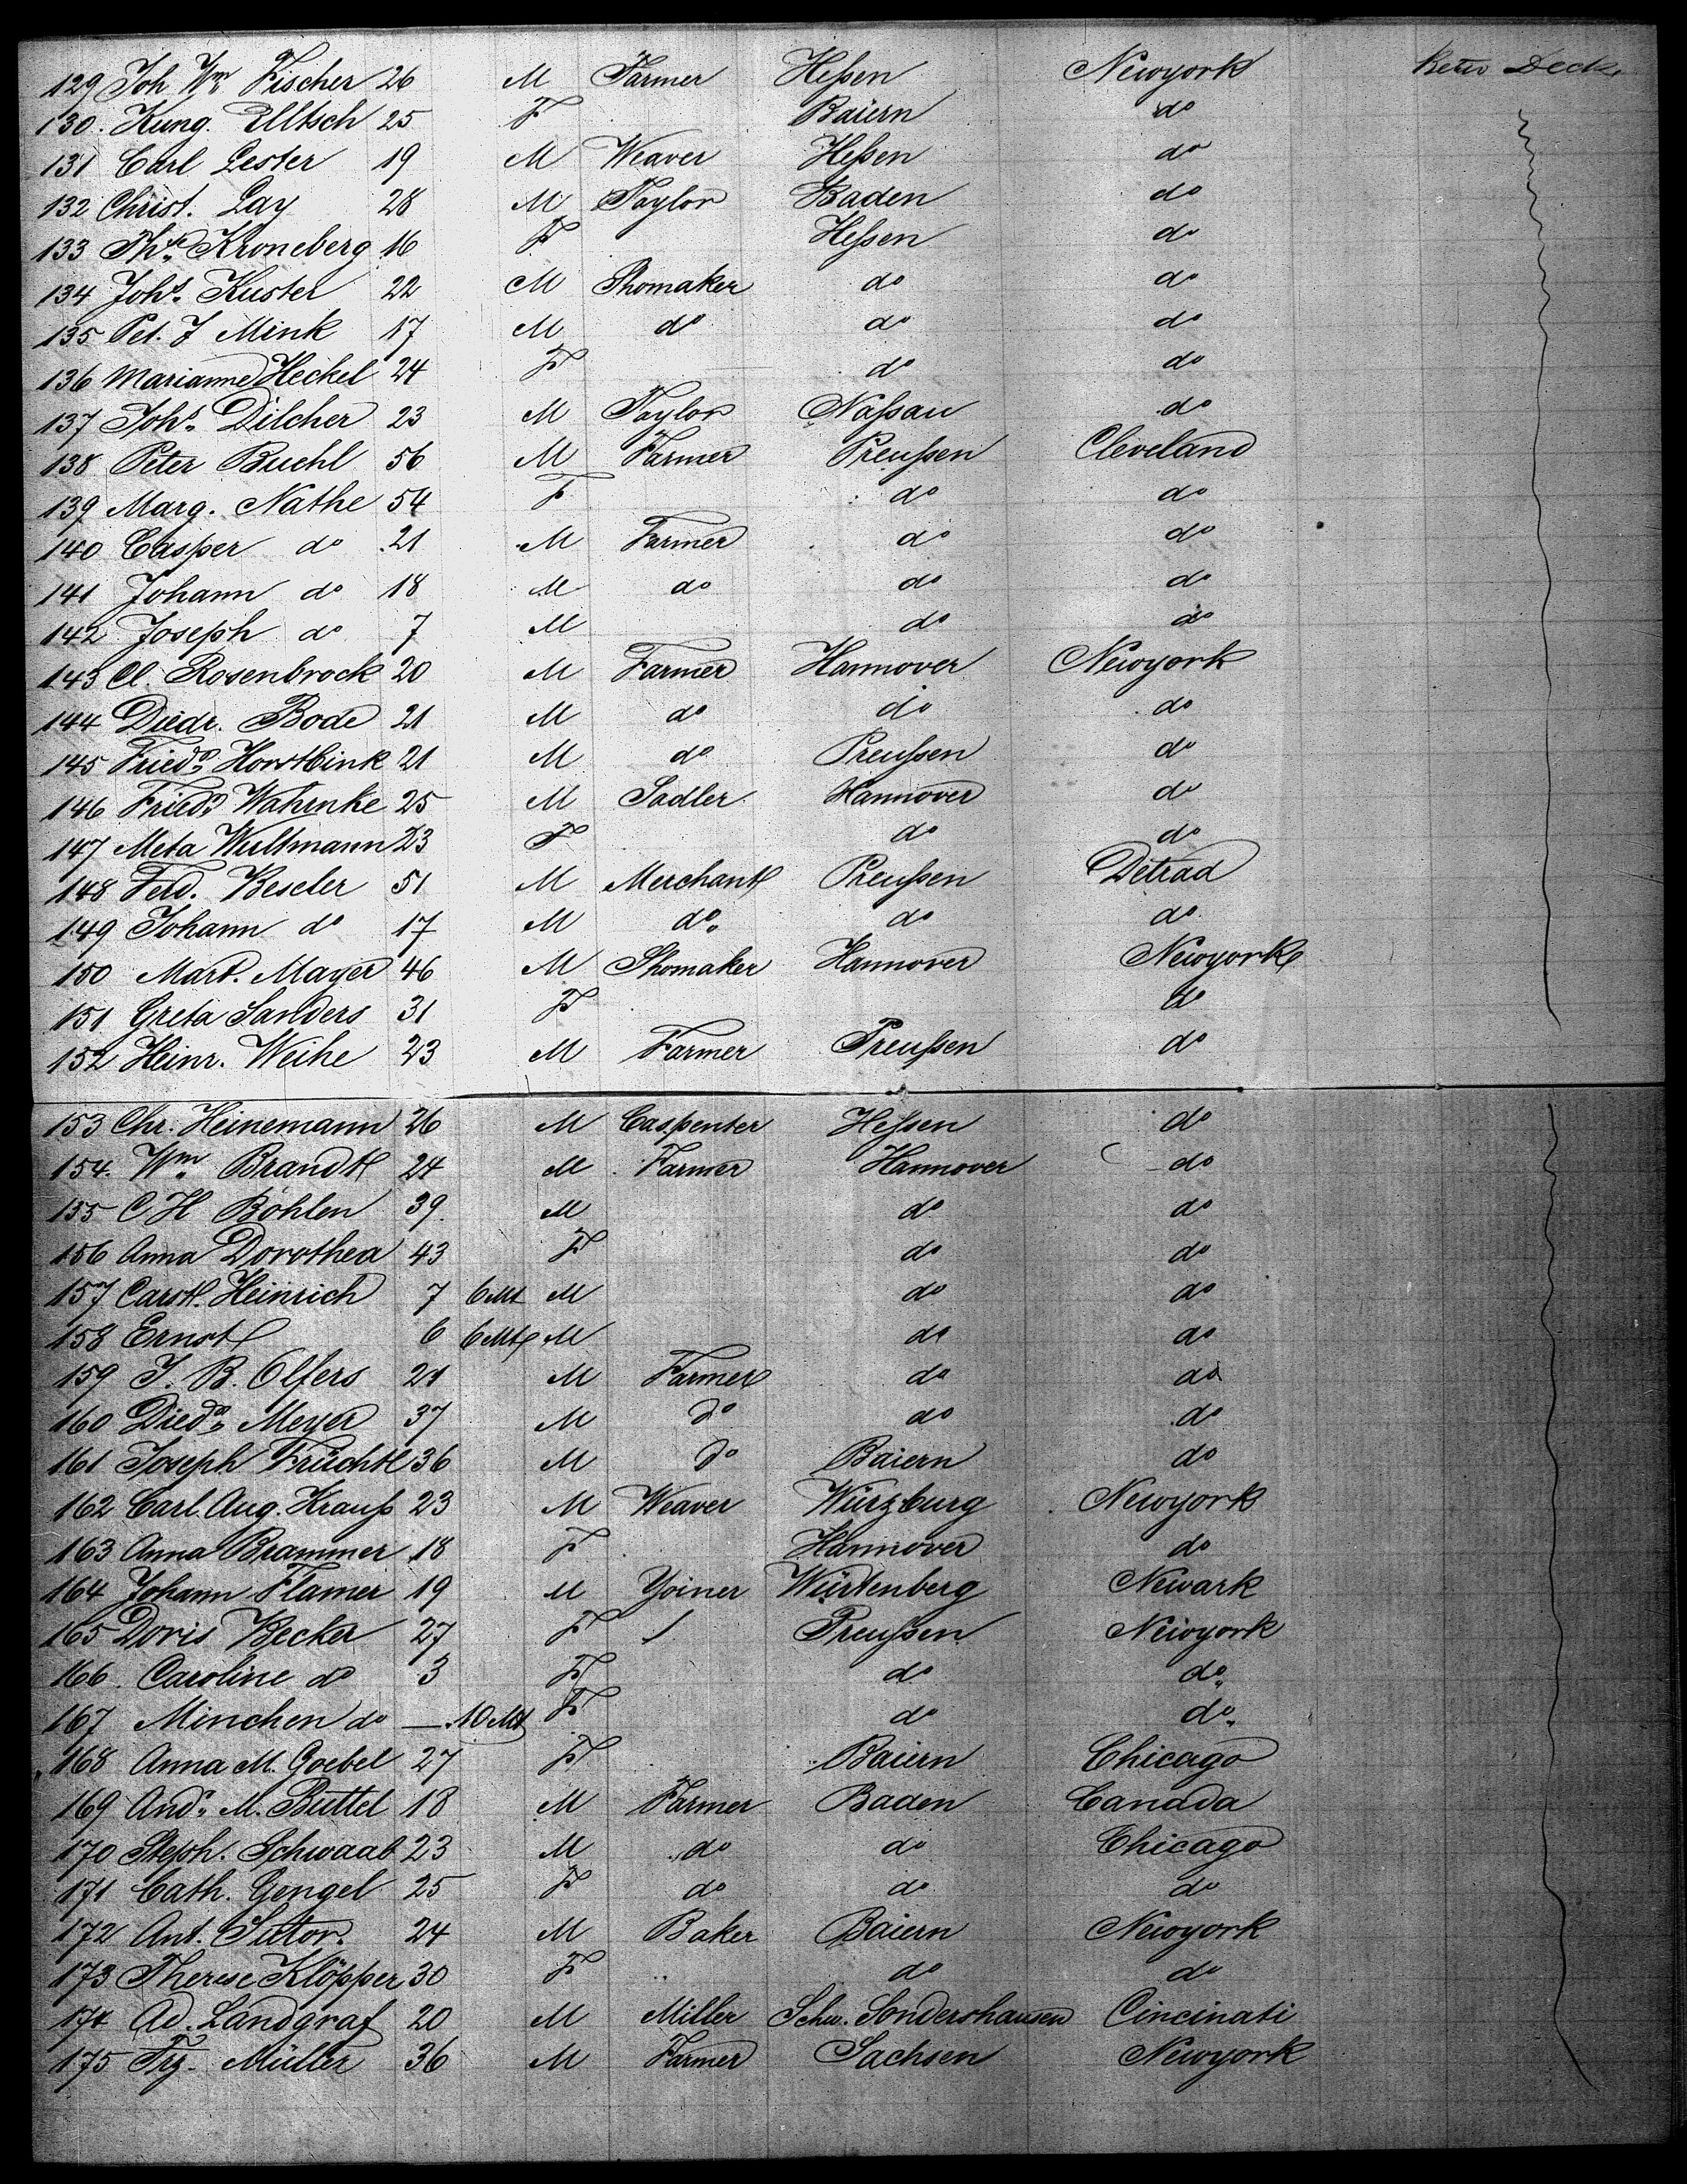 129 Joh Wm Fischer 26 M Farmer Heßen Newyork Betw Deck
130. Kung. Elltsch 25 F Baiern do
131 Carl Lester 19 M Weaver Heßen do
132 Christ. Lay 28 M Taylor Baden do
133 Ths. Kroneberg 16 F Heßen do
134 Johs. Kuster 22 M Shomaker do do
135 Pet. J Mink 17 M do do do
136 Marianne Heckel 24 F do do
137 Johs. Dilcher 23 M Taylor Naßau do
138 Peter Buchl 56 M Farmer Preußen Cleveland
139 Marg. Nathe 54 F do do
140 Casper do 21 M Farmer do do
141 Johann do 18 M do do do
142 Joseph do 7 M do do
143 Cl. Rosenbrock 20 M Farmer Hannover Newyork
144 Diedr. Bode 21 M do do do
145 Fried. Horstbink 21 M do Preußen do
146 Fried. Wahmke 25 M Sadler Hannover do
147 Meta Wultmann 23 F do do
148 Ferd. Keseler 51 M Merchant Preußen Detrad
149 Johann do 17 M do. do do
150 Mart. Mayer 46 M Shomaker Hannover Newyork
151 Greta Sanders 31 F do
152 Heinr. Weihe 23 M Farmer Preußen do
153 Chr. Heinemann 26 M Caspenter Heßen do
154. Wm. Brandt 24 M Farmer Hannover do
155 C H Böhlen 39. M do do
156 Anna Dorothea 43 F do do
157 Carst. Heinrich 7 6 Mt M do do
158 Ernst 6 6 Mt M do do
159 J. B. Olfers 21 M Farmer do do
160 Died. Meyer 37 M do do do
161 Joseph Früchtl 36 M do Baiern do
162 Carl. Aug. Krauß 23 M Weaver Würzburg Newyork
163 Anna Brammer 18 F Hannover do
164 Johann Flamer 19 M Yoiner Würtenberg Newark
165 Doris Becker 27 F / Preußen Newyork
166. Caroline do 3 F do do.
167 Minchen do — 10 Mt F do do.
168 Anna M. Goebel 27 F Baiern Chicago
169 Ands. M. Buttel 18 M Farmer Baden Canada
170 Steph. Schwaab 23 M do do Chicago
171 Cath. Gengel 25 F do do do
172 Ant. Sutor. 24 M Baker Baiern Newyork
173 Therese Klöpper 30 F do do
174 Ad. Landgraf 20 M Miller Schw. Sondershausen Cincinati
175 Frz. Müller 36 M Farmer Sachsen Newyork